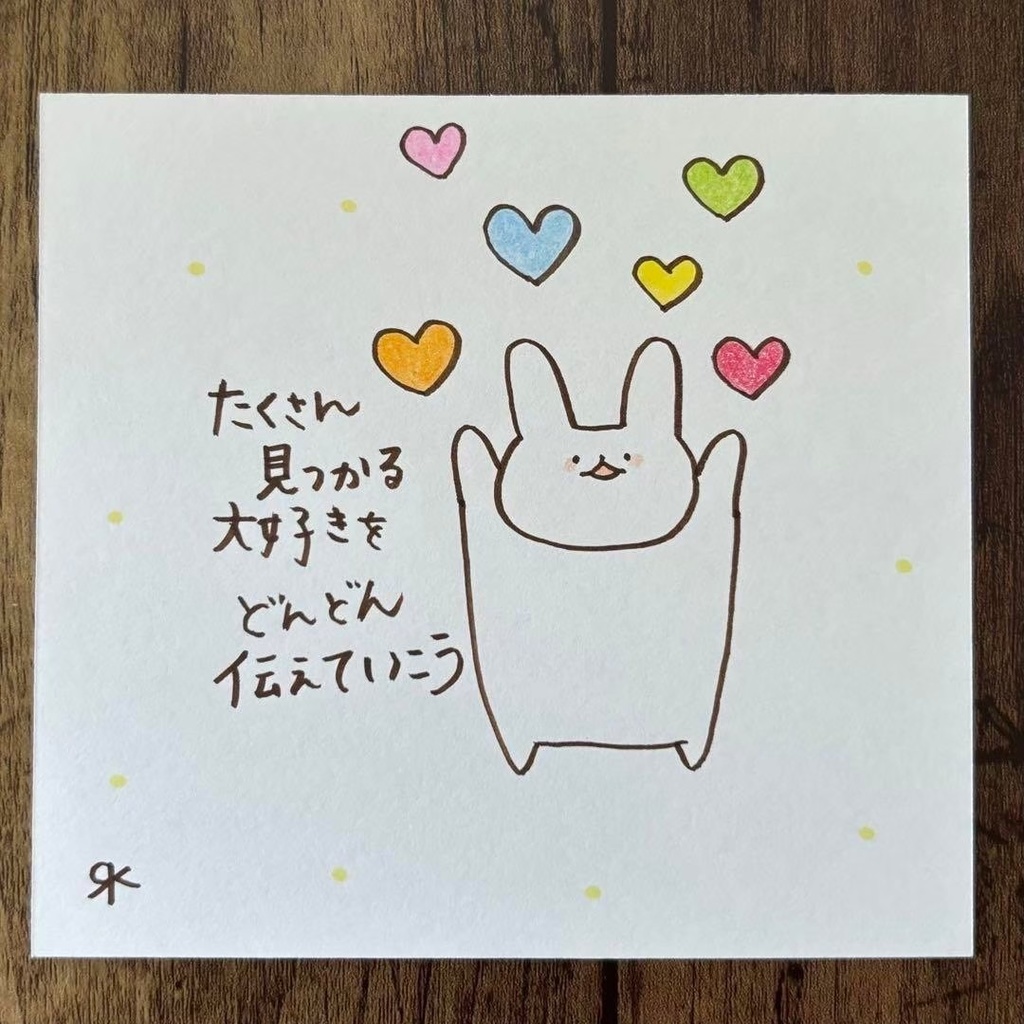 たくさん
見つかる
大好きを
どんどん
伝えていこう